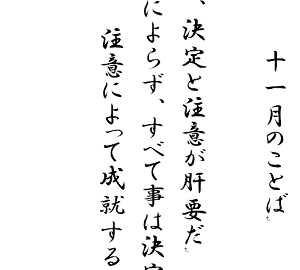 十一月のことば
、決定と注意が肝要だ
によらず、すべて事は決定
注意によって成就する